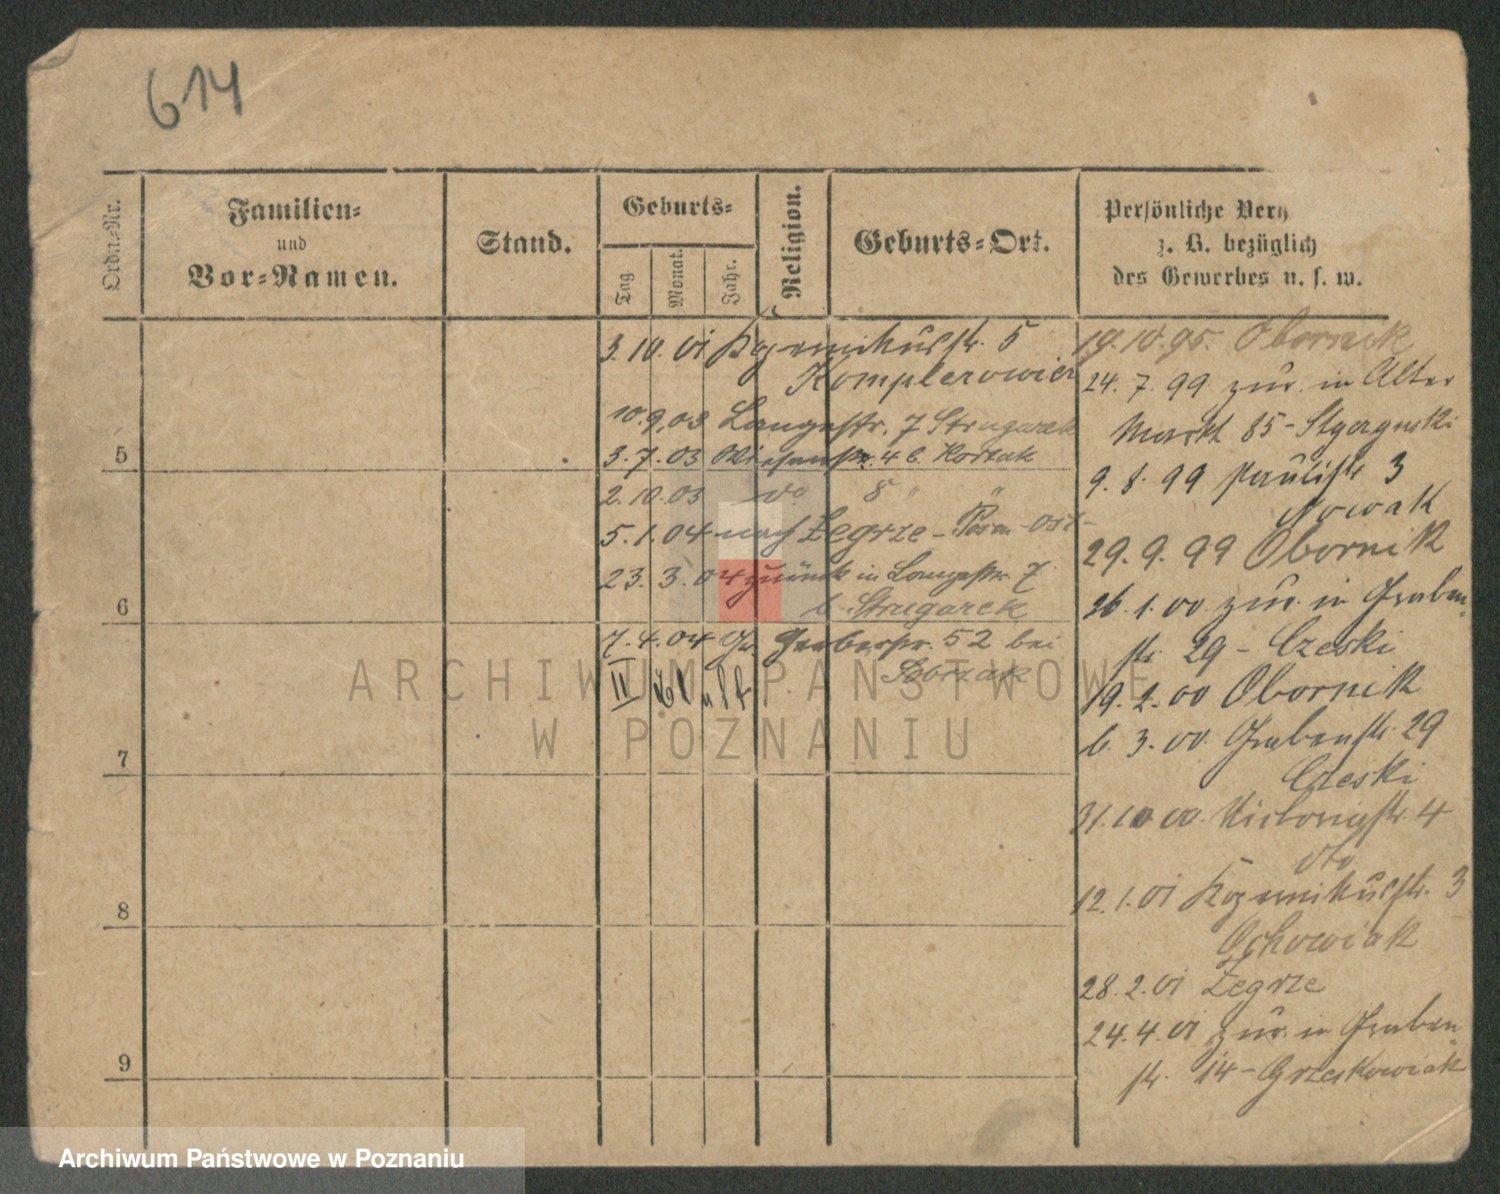 614
Ordn.-Nr.
Familien-
und
Vor-Namen.
Stand.
Geburts-
Tag
Monat.
Jahr.
Religion.
Geburts-Ort.
Persönliche Ver
z. B. bezüglich
des Gewerbes u. s. w.
3. 10. 01 Kopernikusstr. 5
Komplerowicz
10. 9. 03 Langestr. 7 Strugarek
3. 7. 03 Wiesenstr. 4 b.
2. 10. 03 do 8 " "
5. 1. 04 nach Żegrze - Posen-Ost-
23. 3. 04 zurück in Langestr. 7
b. Strugarek
7. 4. 04 Gerberstr. 52 bei
Sobrzak
II
19. 10. 95. Obornik
24. 7. 99 zur. in Alter
Markt 85 -
9. 8. 99 Paulistr 3
Nowak
29. 9. 99 Obornik
26. 1. 00 zur. in Graben-
str. 29 - Czeski
19. 2. 00 Obornik
6. 3. 00. Grabenstr. 29
Czeski
31. 10 00. Victoriastr. 4
12. 1. 01 Kopernikusstr. 3
Ochowiak
28. 2. 01 Żegrze
24. 4. 01 zur. in Graben
str. 14 - Grzeskowiak
5
6
7
8
9
ARCHIWUM PAŃSTWOWE
W POZNANIU
Archiwum Państwowe w Poznaniu